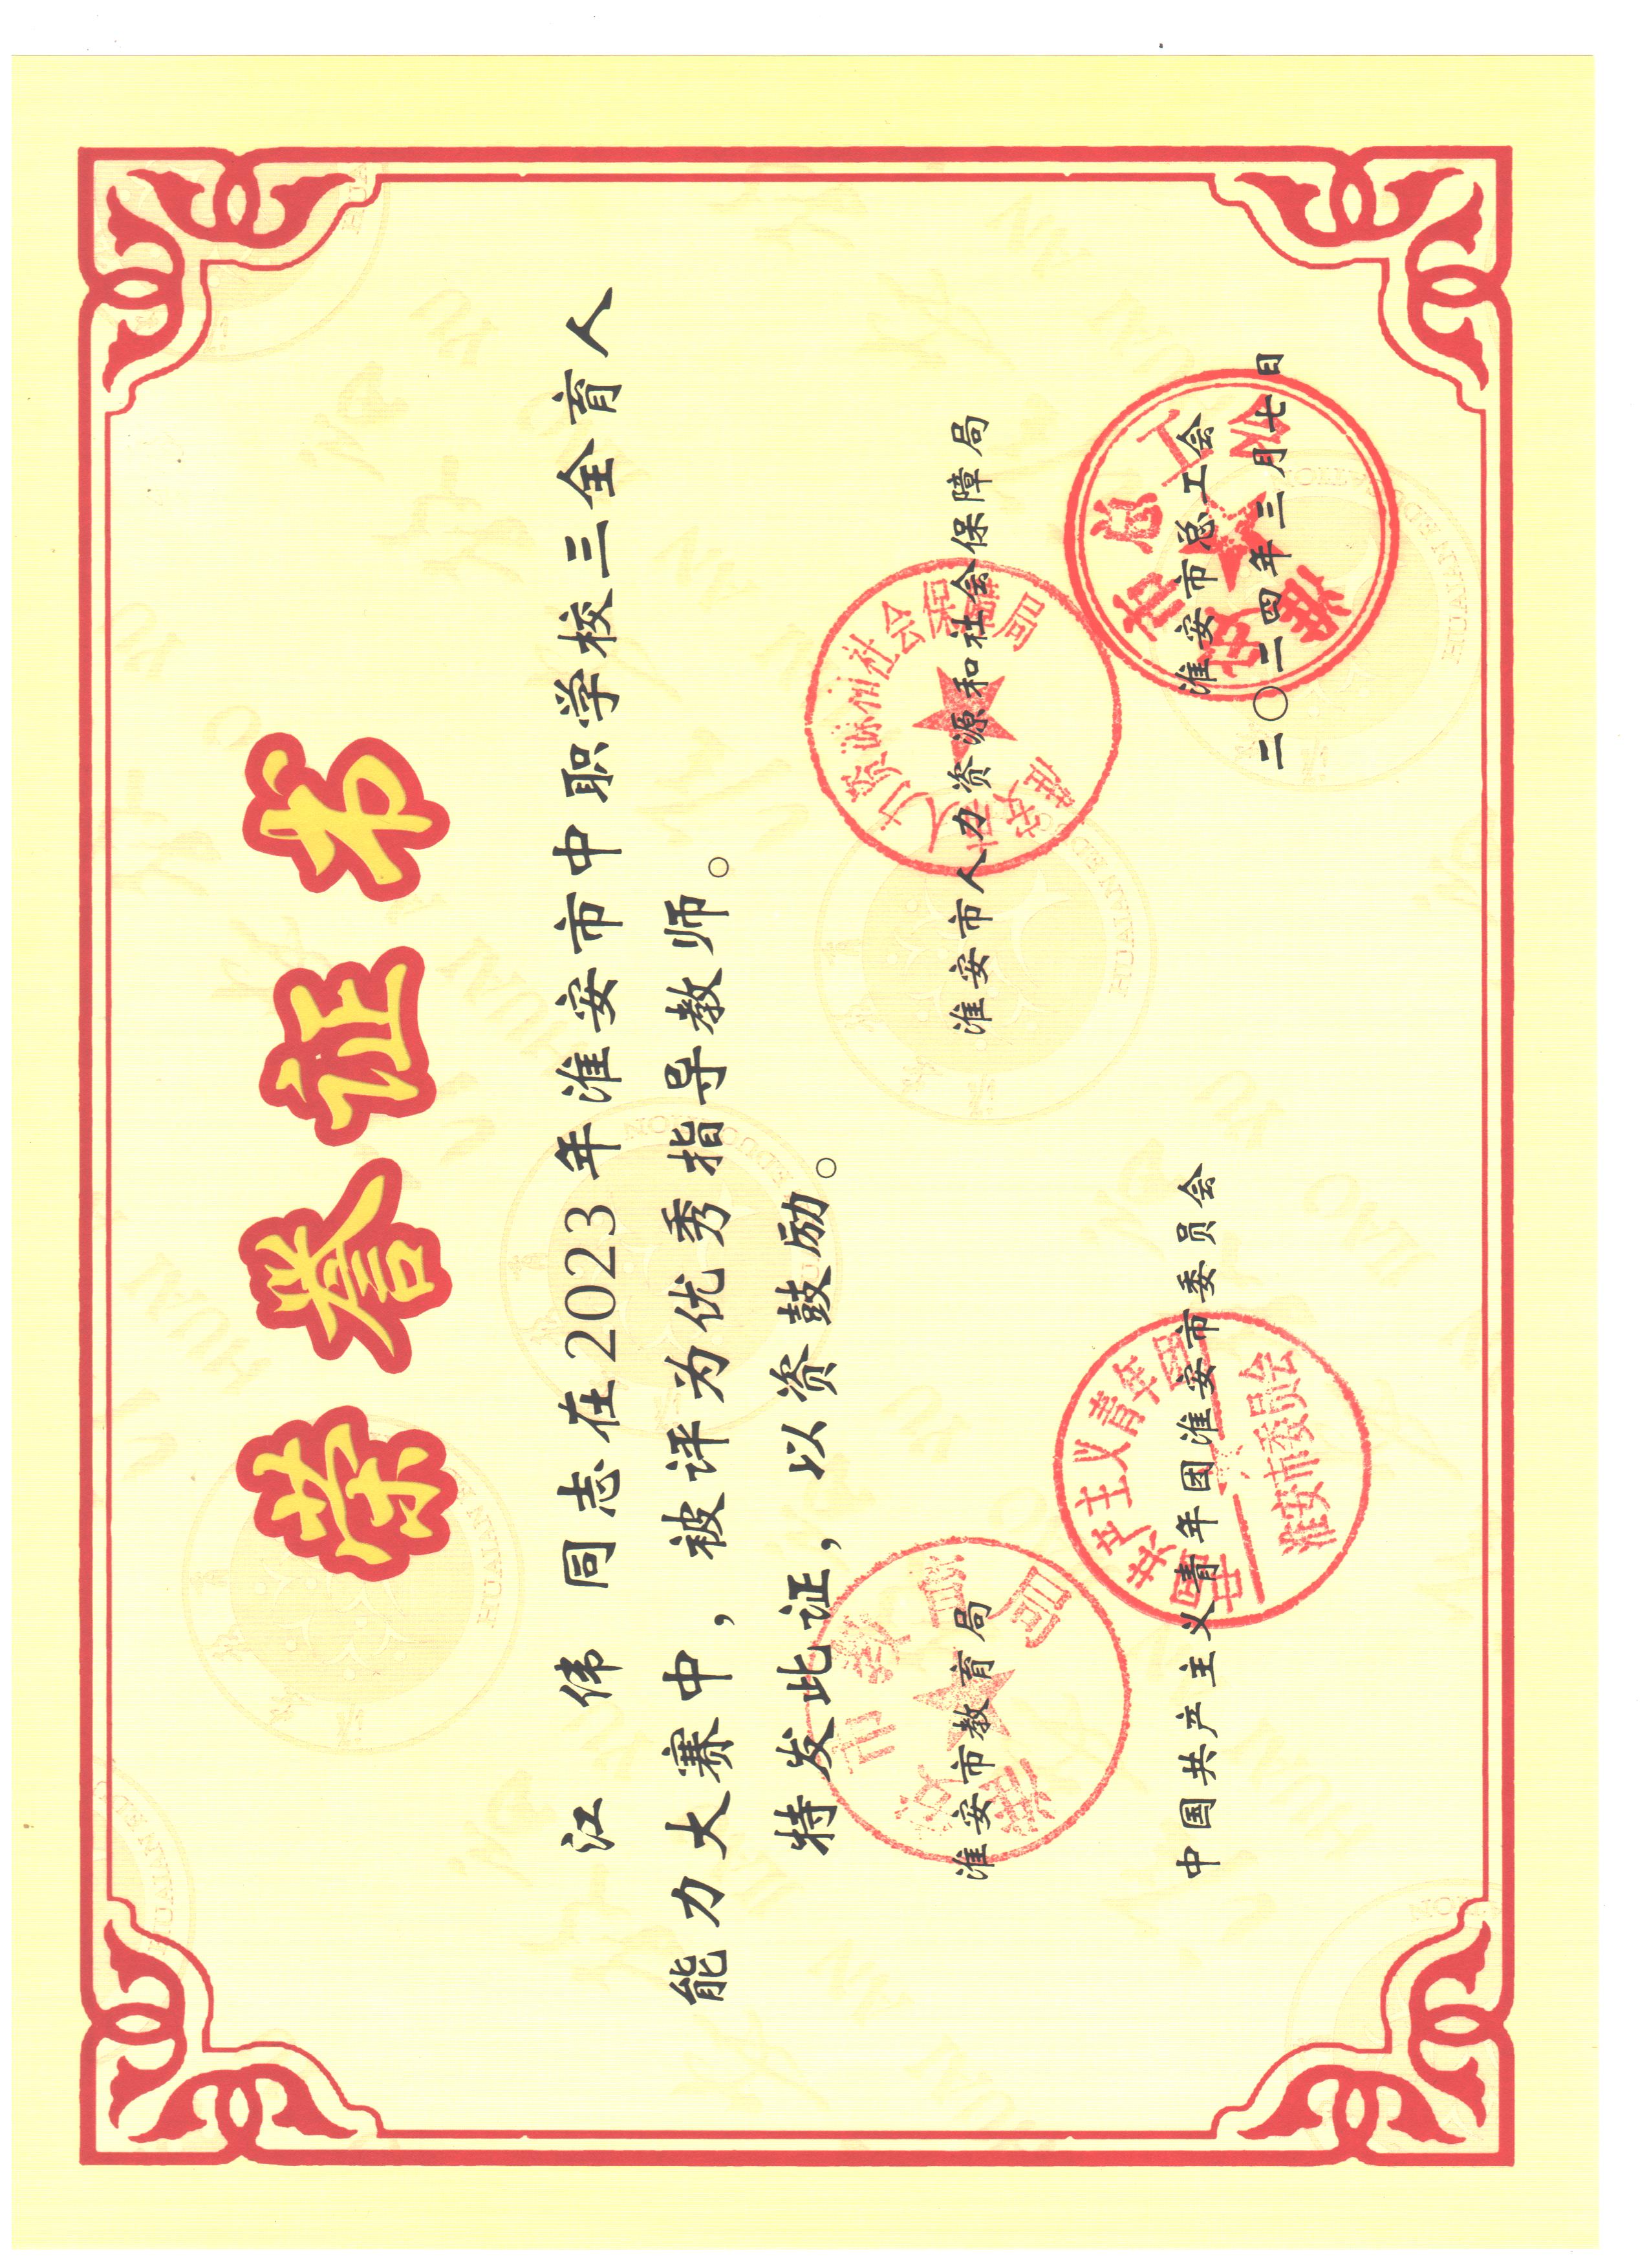 荣誉证书
江 伟 同志在2023年淮安市中职学校三全育人
能力大赛中，被评为优秀指导教师。
特发此证，以资鼓励。
淮安市教育局
淮安市人力资源和社会保障局
中国共产主义青年团淮安市委员会
淮安市总工会
二〇二四年三月七日
淮安市教育局
淮安市人力资源和社会保障局
中国共产主义青年团
淮安市委员会
淮安市总工会